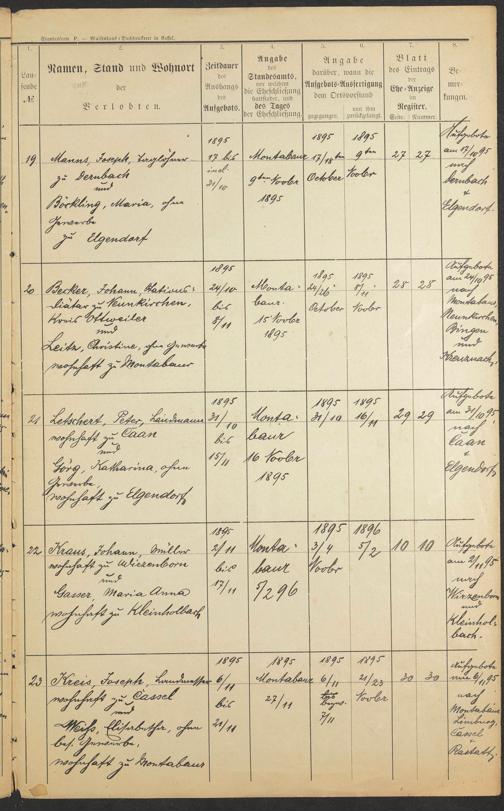 Standesamt P. — Waisenhaus-Buchdruckerei in Cassel.
1. 2. 3. 4. 5. 6. 7. 8.
Lau-
fende
№
Namen, Stand und Wohnort
der
Verlobten.
Zeitdauer
des
Aushangs
des
Aufgebots.
Angabe
des
Standesamts,
vor welchem
die Eheschließung
stattfindet, und
des Tages
der Eheschließung.
Angabe
darüber, wann die
Aufgebots-Ausfertigung
dem Ortsvorstand
zugegangen. von ihm
zurückgelangt.
Blatt
des Eintrags
der
Ehe-Anzeige
im
Register.
Seite. Nummer.
Be-
mer-
kungen.
19
Manns, Joseph, Taglöhner
zu Dernbach
und
Böckling, Maria, ohne
Gewerbe
zu Elgendorf
1895
17 bis
incl.
31/10
Montabaur
9ten Novbr
1895
1895
17/18ten
October
1895
9ten
Novbr
27 27
Aufgebote
am 17/10 95
nach
Dernbach
&
Elgendorf.
20
Becker, Johann,
zu Neunkirchen,
Kreis Ottweiler
und
Leitz, Christine, ohne Gewerbe
wohnhaft zu Montabaur
1895
24/10
bis
8/11
Monta-
baur.
15 Novbr
1895
1895
24/26
October
1895
8/11
Novbr
28 28
Aufgebote
am 24/10 95
nach
Montabaur,
Neunkirchen
Bingen
und
Kreuznach.
21
Letschert, Peter, Landmann
wohnhaft zu Caan
und
Görg, Katharina, ohne
Gewerbe,
wohnhaft zu Elgendorf
1895
31/10
bis
15/11
Monta-
baur
16 Novbr
1895
1895
31/10
1895
16/11
29 29
Aufgebote
am 31/10 95
nach
Caan
&
Elgendorf
22
Kraus, Johann, Müller
wohnhaft zu
und
Gasser, Maria Anna
wohnhaft zu Kleinholbach
1895
2/11
bis
17/11
Monta-
baur
5/2 96
1895
3/4
Novbr
1896
5/2
10 10
Aufgebote
am 2/11 95
nach
und
Kleinhol-
bach.
23
Kreis, Joseph,
wohnhaft zu Cassel
und
Weiss, Elisabetha, ohne
bes. Gewerbe,
wohnhaft zu Montabaur
1895
6/11
bis
21/11
1895
Montabaur
27/11
1895
6/11
bezw.
7/11
1895
21/23
Novbr
30 30
Aufgebote
am 6/11 95
nach
Montabaur
Limburg,
Cassel
&
Rastatt.